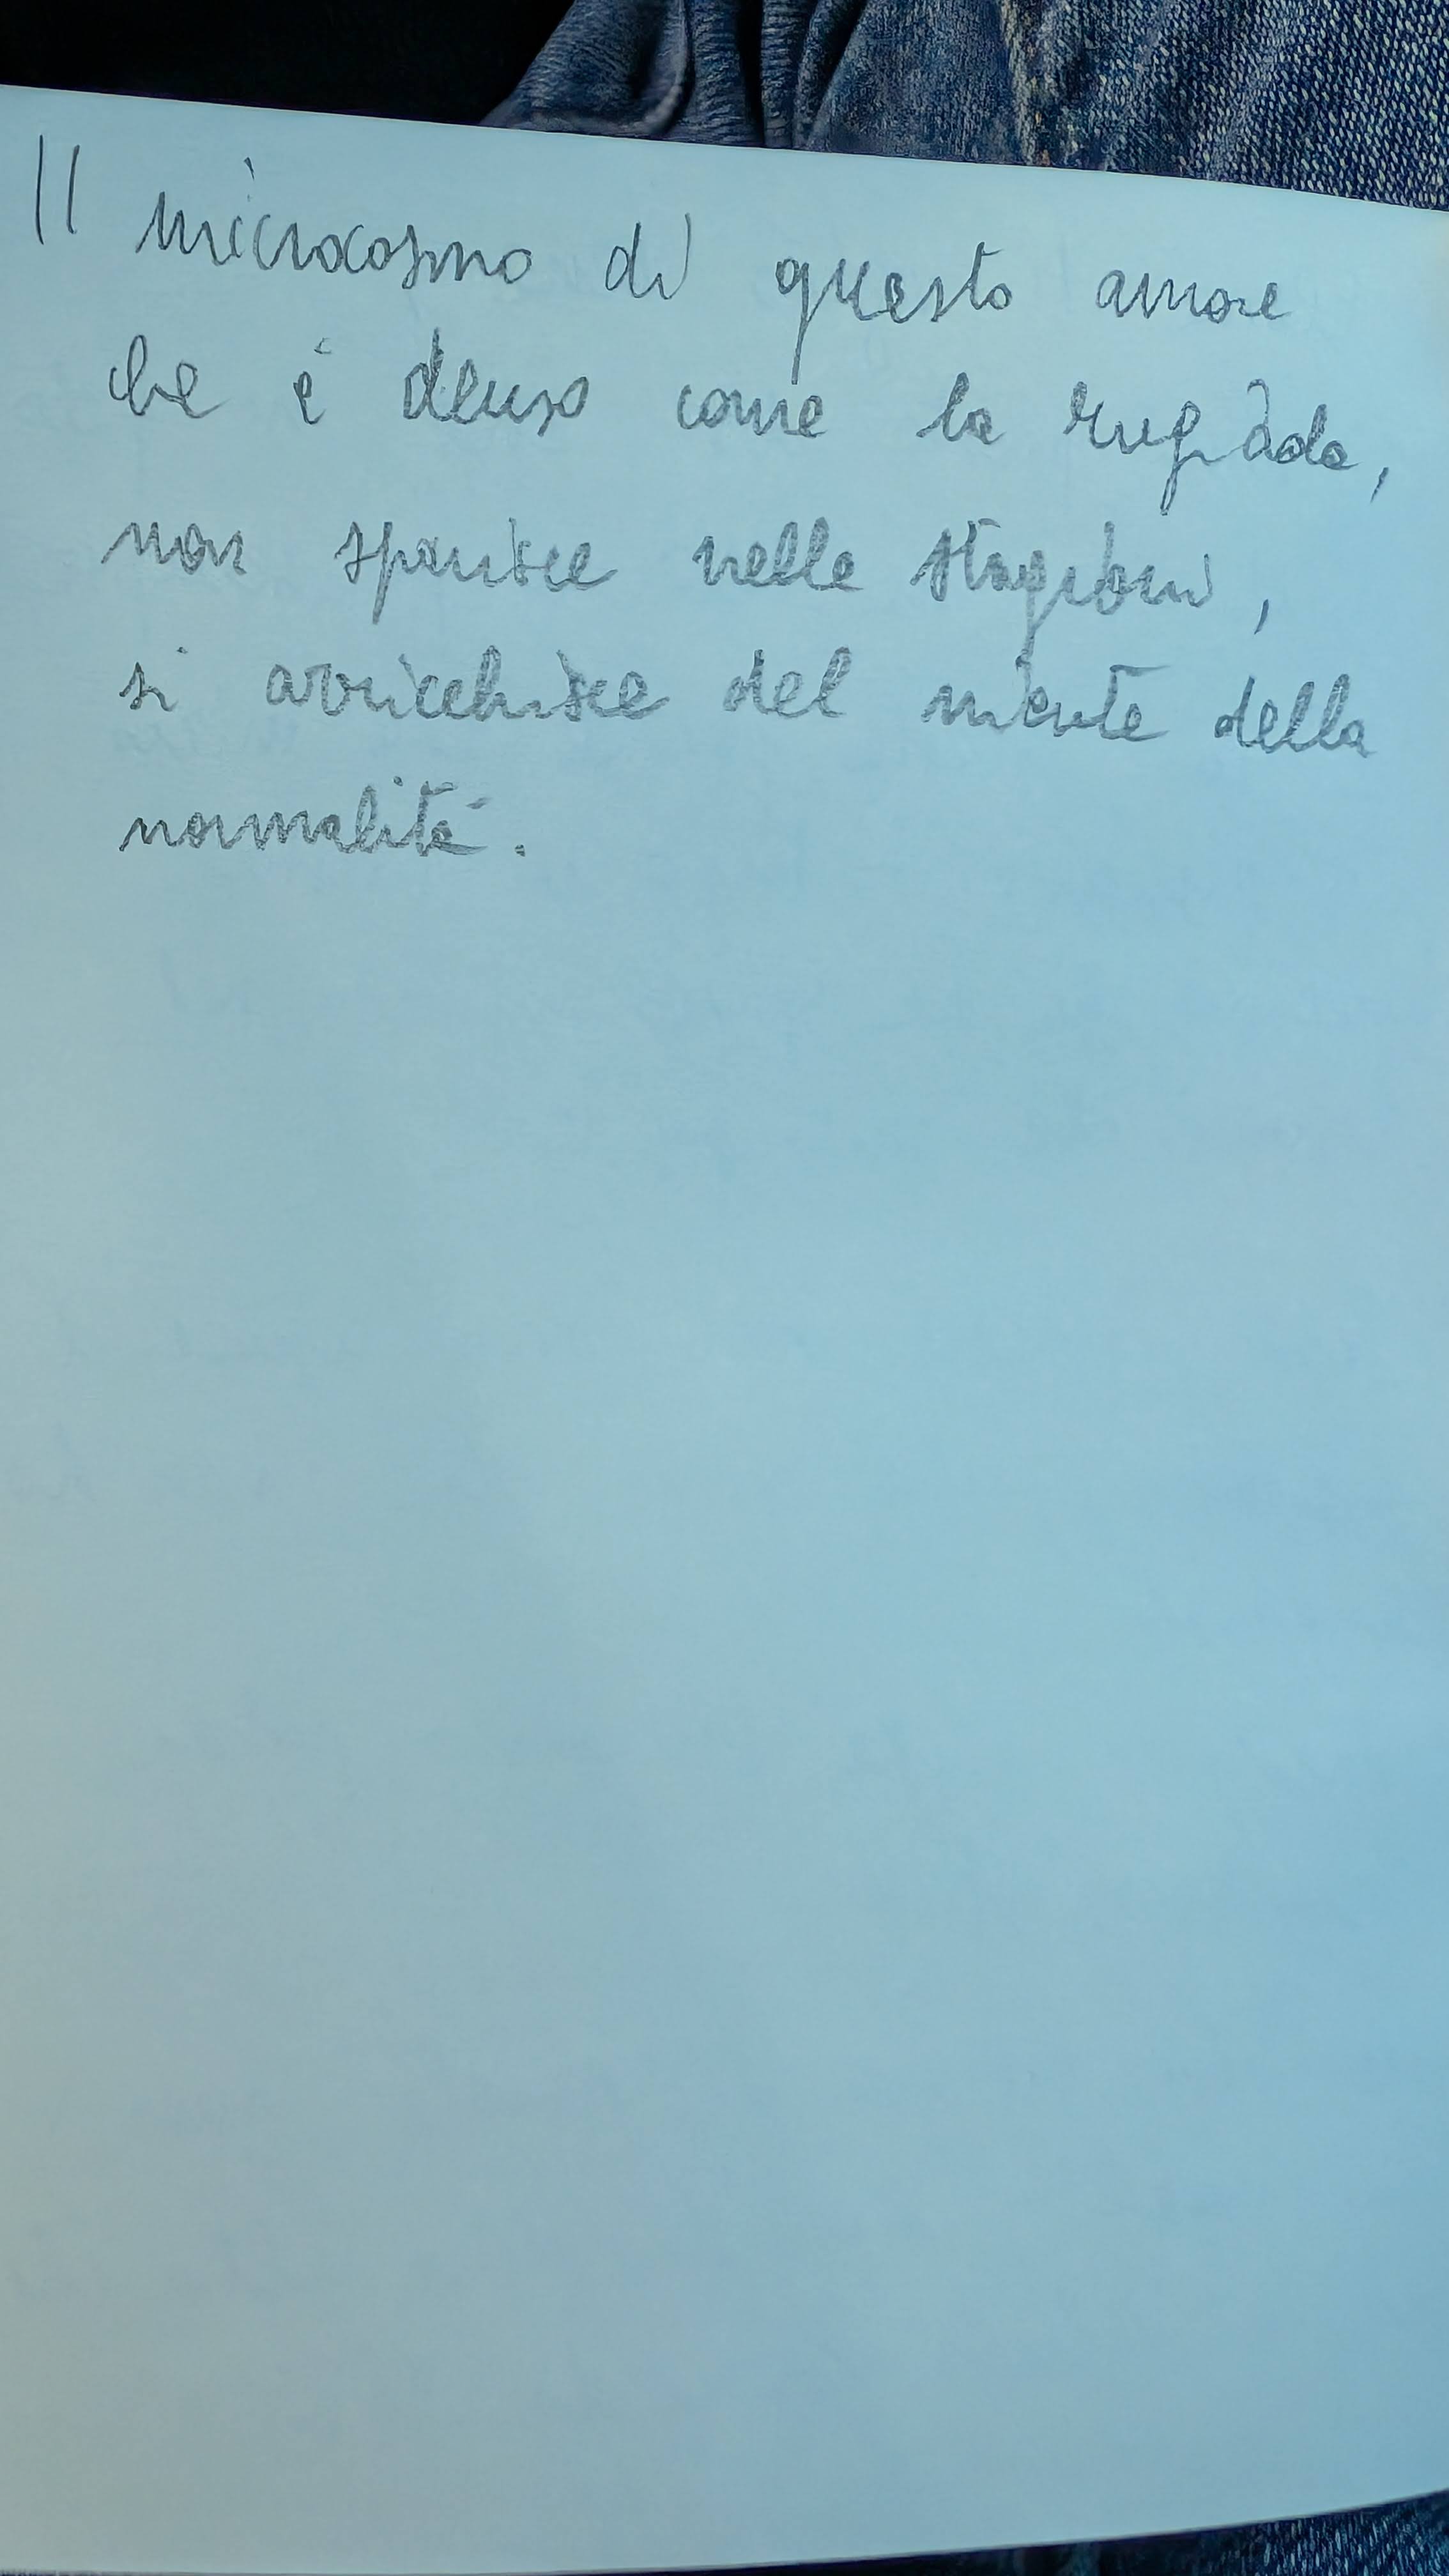 Il microcosmo di questo amore
che è denso come la rugiada,
non sparisce nelle stagioni,
si arricchisce del niente della
normalità.